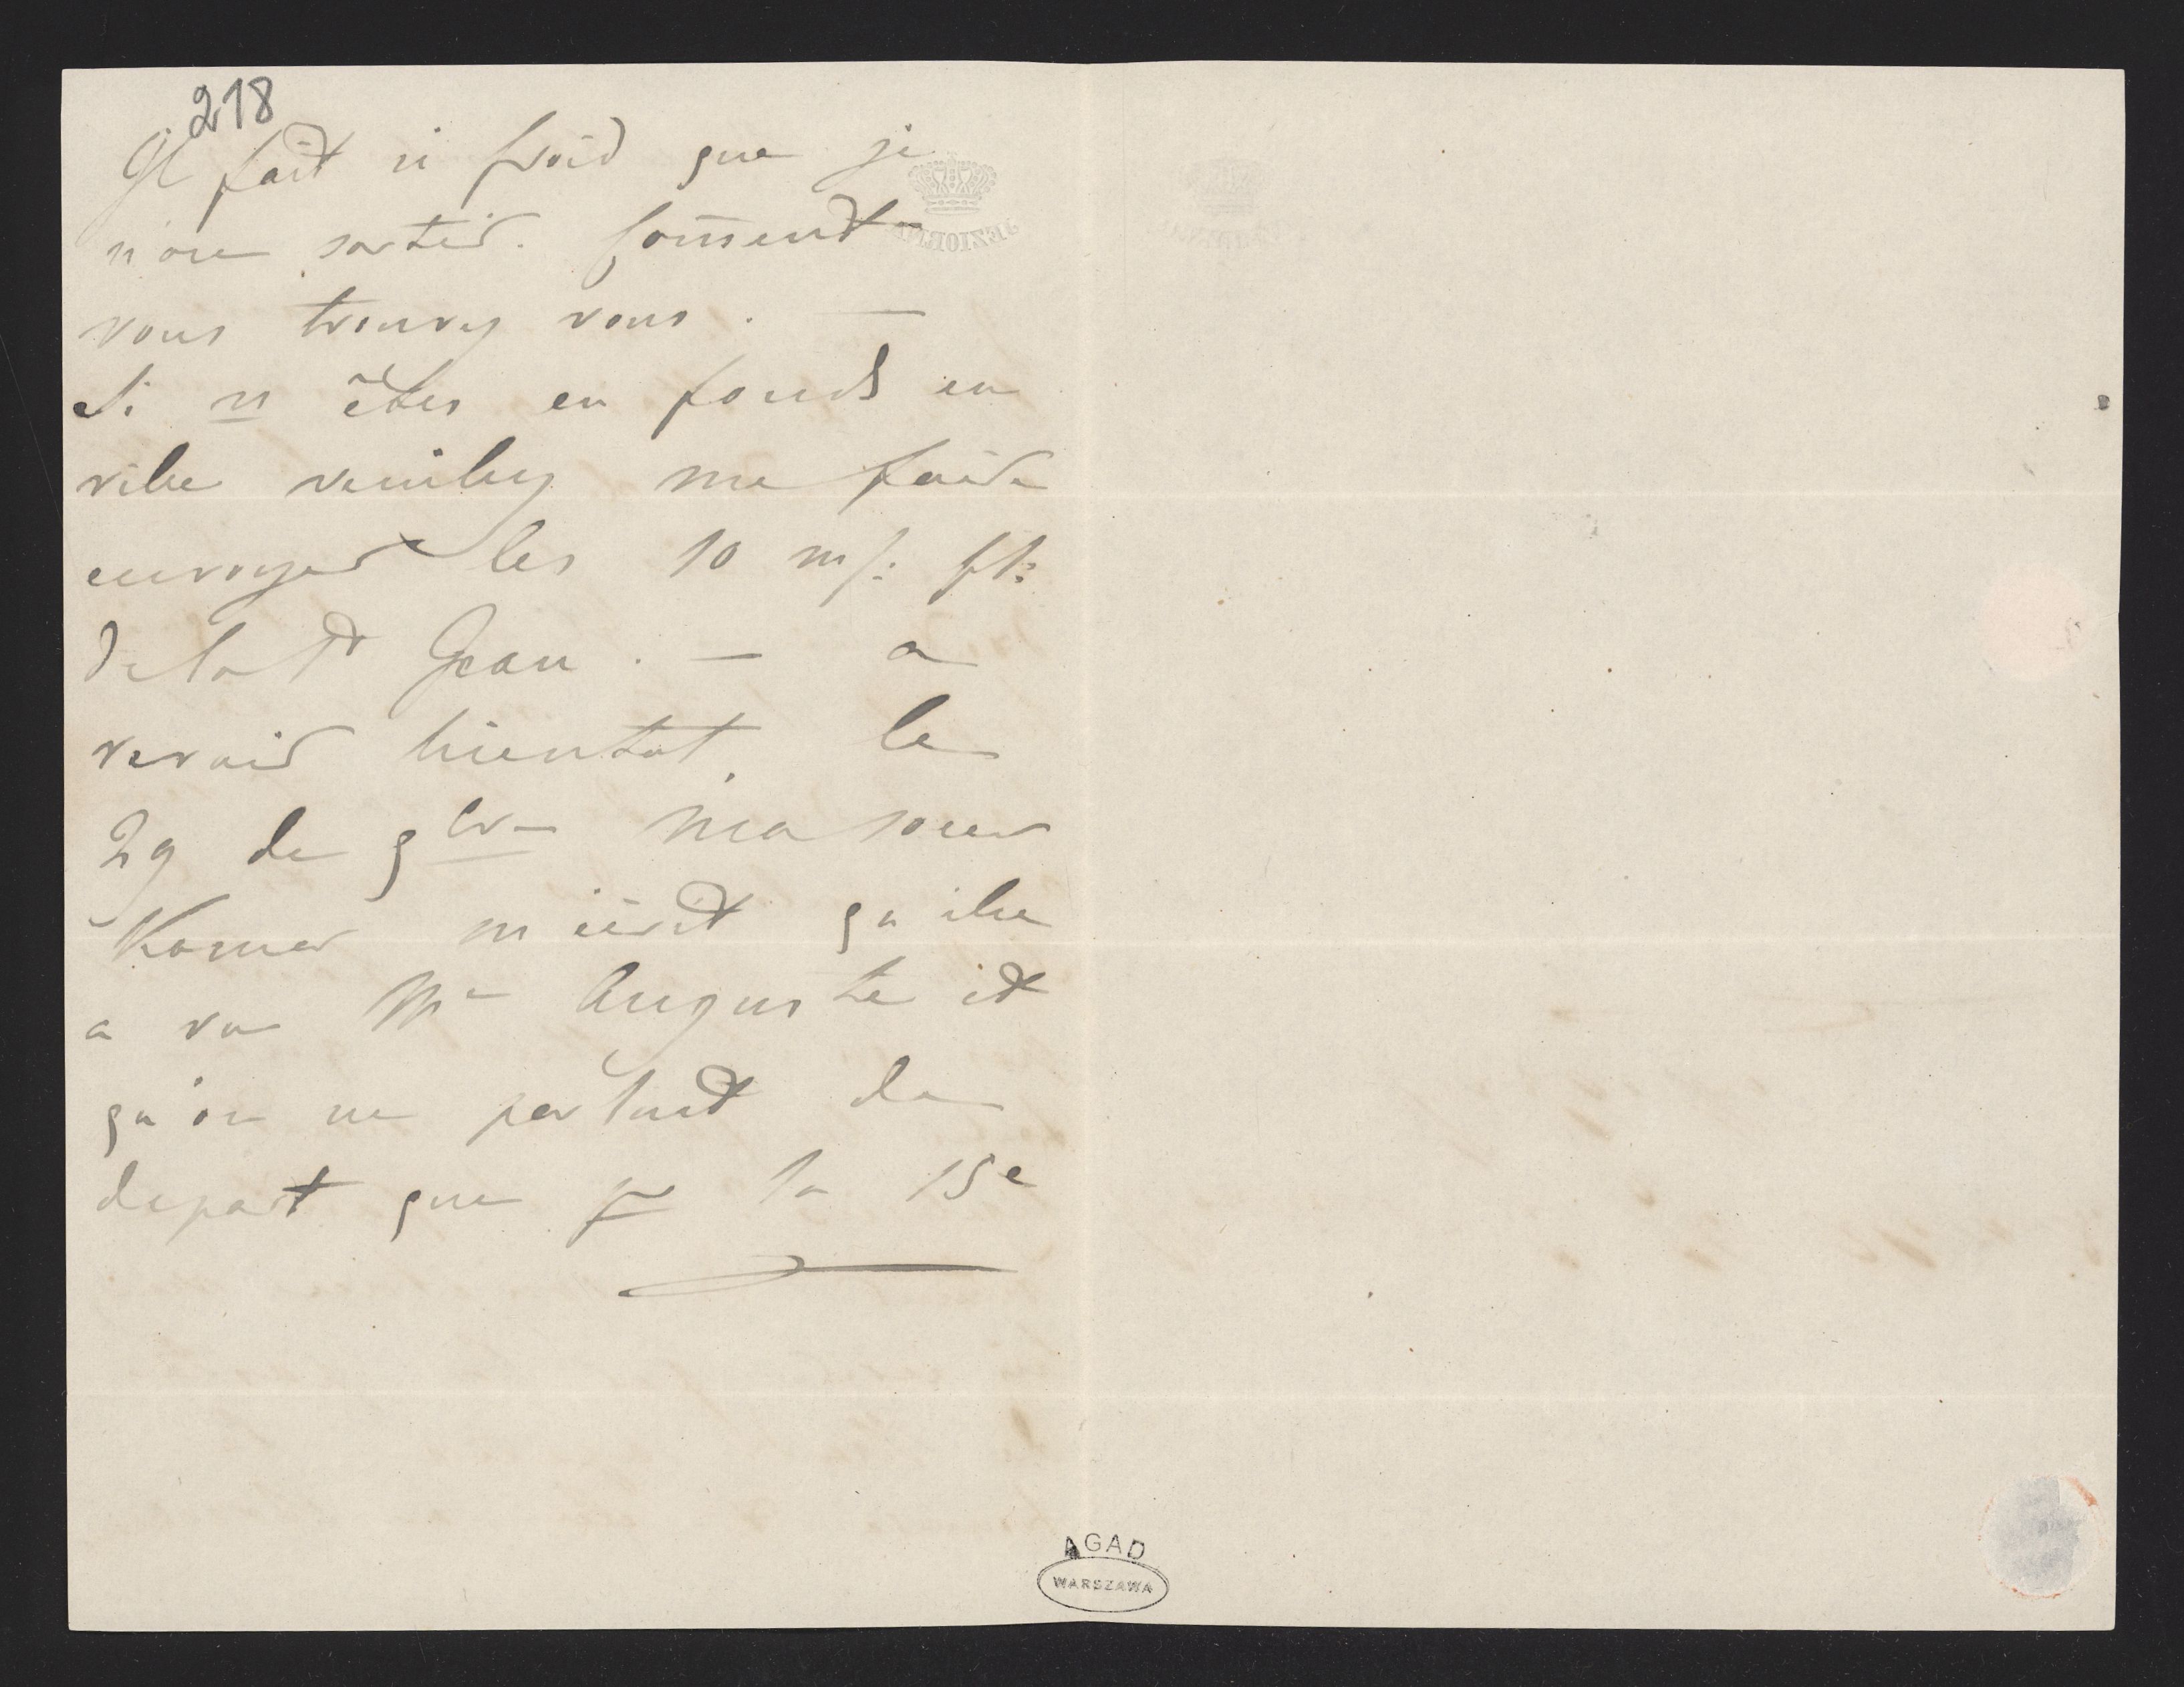 218
Il fait si froid que je
n'ose sortir. Comment
vous trouvez vous. —
Si vs êtes en fonds en
ville veuillez me faire
envoyer les 10 m/: fl:
de la Pr Jean. — a
revoir bientot, le
29 de 9bre Ma soeur
m'écrit qu'elle
a vu Me Auguste et
qu'on ne parlait de
depart que pr le 15e
AGAD
WARSZAWA